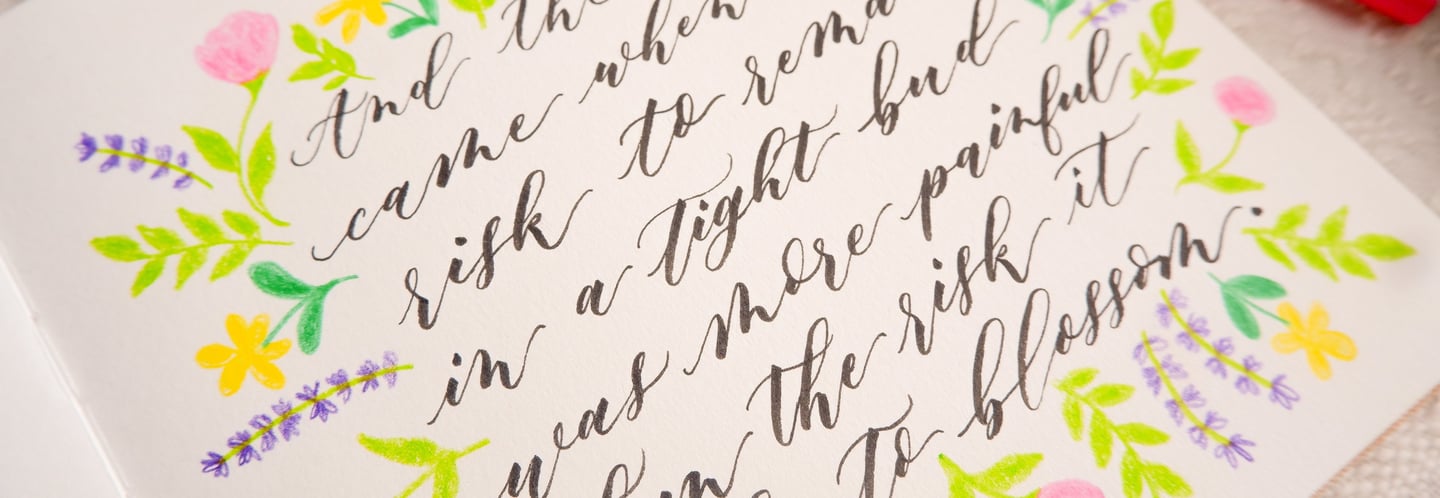 And the
came when
risk to rema
in a tight bud
was more painful
the risk it
to blossom.